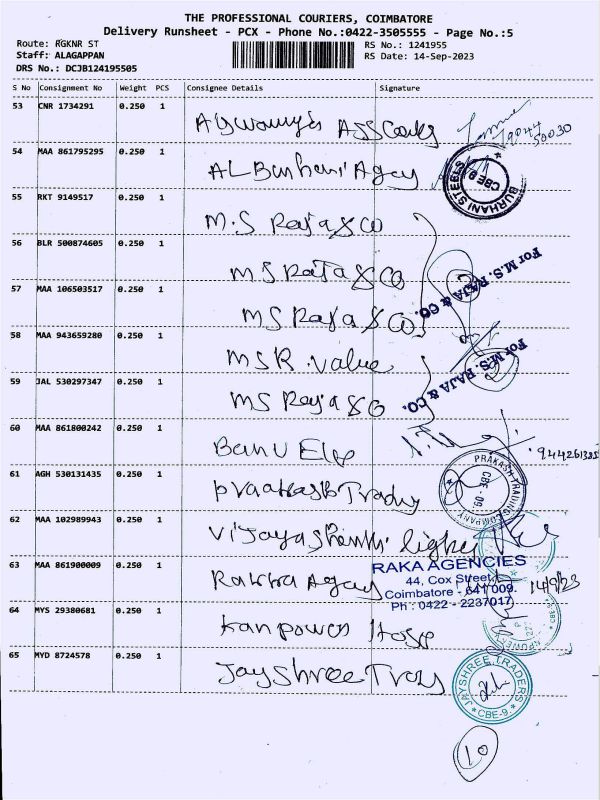 THE PROFESSIONAL COURIERS, COIMBATORE
Delivery Runsheet - PCX - Phone No.:0422-3505555 - Page No.:5
Route: RGKNR ST RS No.: 1241955
Staff: ALAGAPPAN RS Date: 14-Sep-2023
DRS No.: DCJB124195505
S No Consignment No Weight PCS Consignee Details Signature
53 CNR 1734291 0.250 1
54 MAA 861795295 0.250 1 AL Burhani Agcy
BURHANI STEELS CBE-9
55 RKT 9149517 0.250 1 M.S Raja & CO
56 BLR 500874605 0.250 1 MS Raja & CO
For M.S. RAJA & CO.
57 MAA 106503517 0.250 1 MS Raja & CO
58 MAA 943659280 0.250 1 MSR. Value
For M.S. RAJA & CO.
59 JAL 530297347 0.250 1 MS Raja & Co
60 MAA 861800242 0.250 1 Banu Ele
61 AGH 530131435 0.250 1 Traday
PRAKASH TRADING COMPANY CBE - 09
62 MAA 102989943 0.250 1 Vijaya
63 MAA 861900009 0.250 1 Agency
RAKA AGENCIES
44, Cox Street,
Coimbatore - 641 009.
Ph : 0422 - 2237017
14/9/23
64 MYS 29380681 0.250 1 Kanpower
65 MYD 8724578 0.250 1 Jay Shree
JAYSHREE TRADERS CBE-9.
10